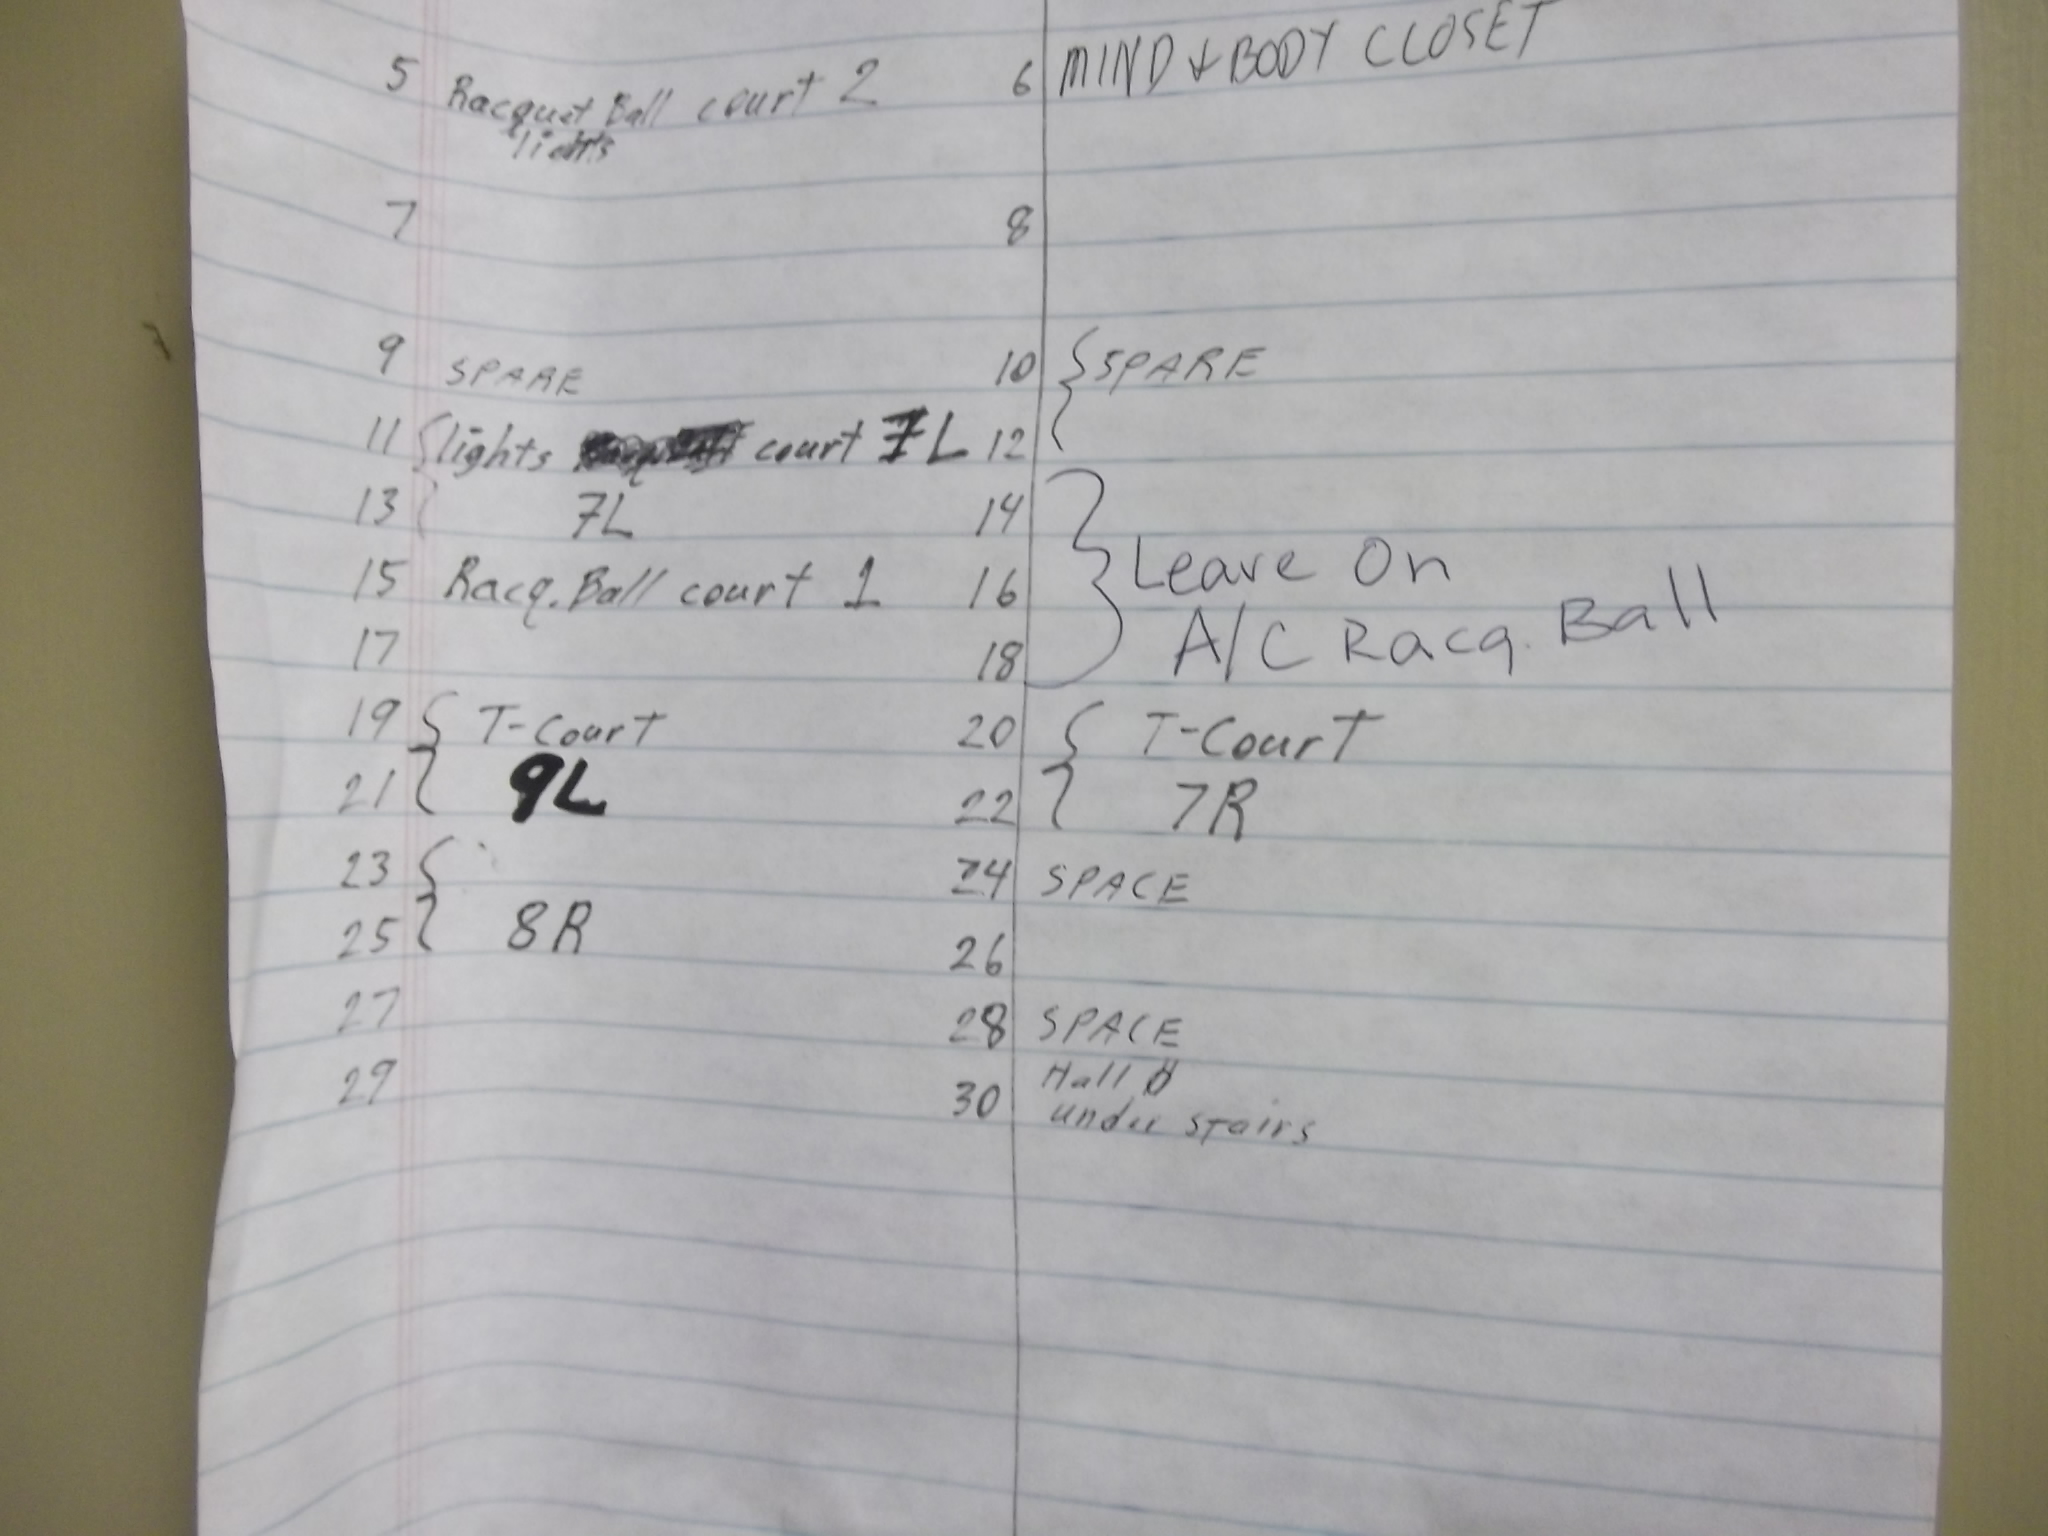 5 Racquet Ball court 2 6 MIND & BODY CLOSET
lights
7 8
9 SPARE 10 SPARE
11 lights court 7L 12
13 7L 14
15 Racq. Ball court 1 16 Leave On
17 18 A/C Racq. Ball
19 T-Court 20 T-Court
21 9L 22 7R
23 24 SPACE
25 8R 26
27 28 SPACE
29 30 Hall
under stairs